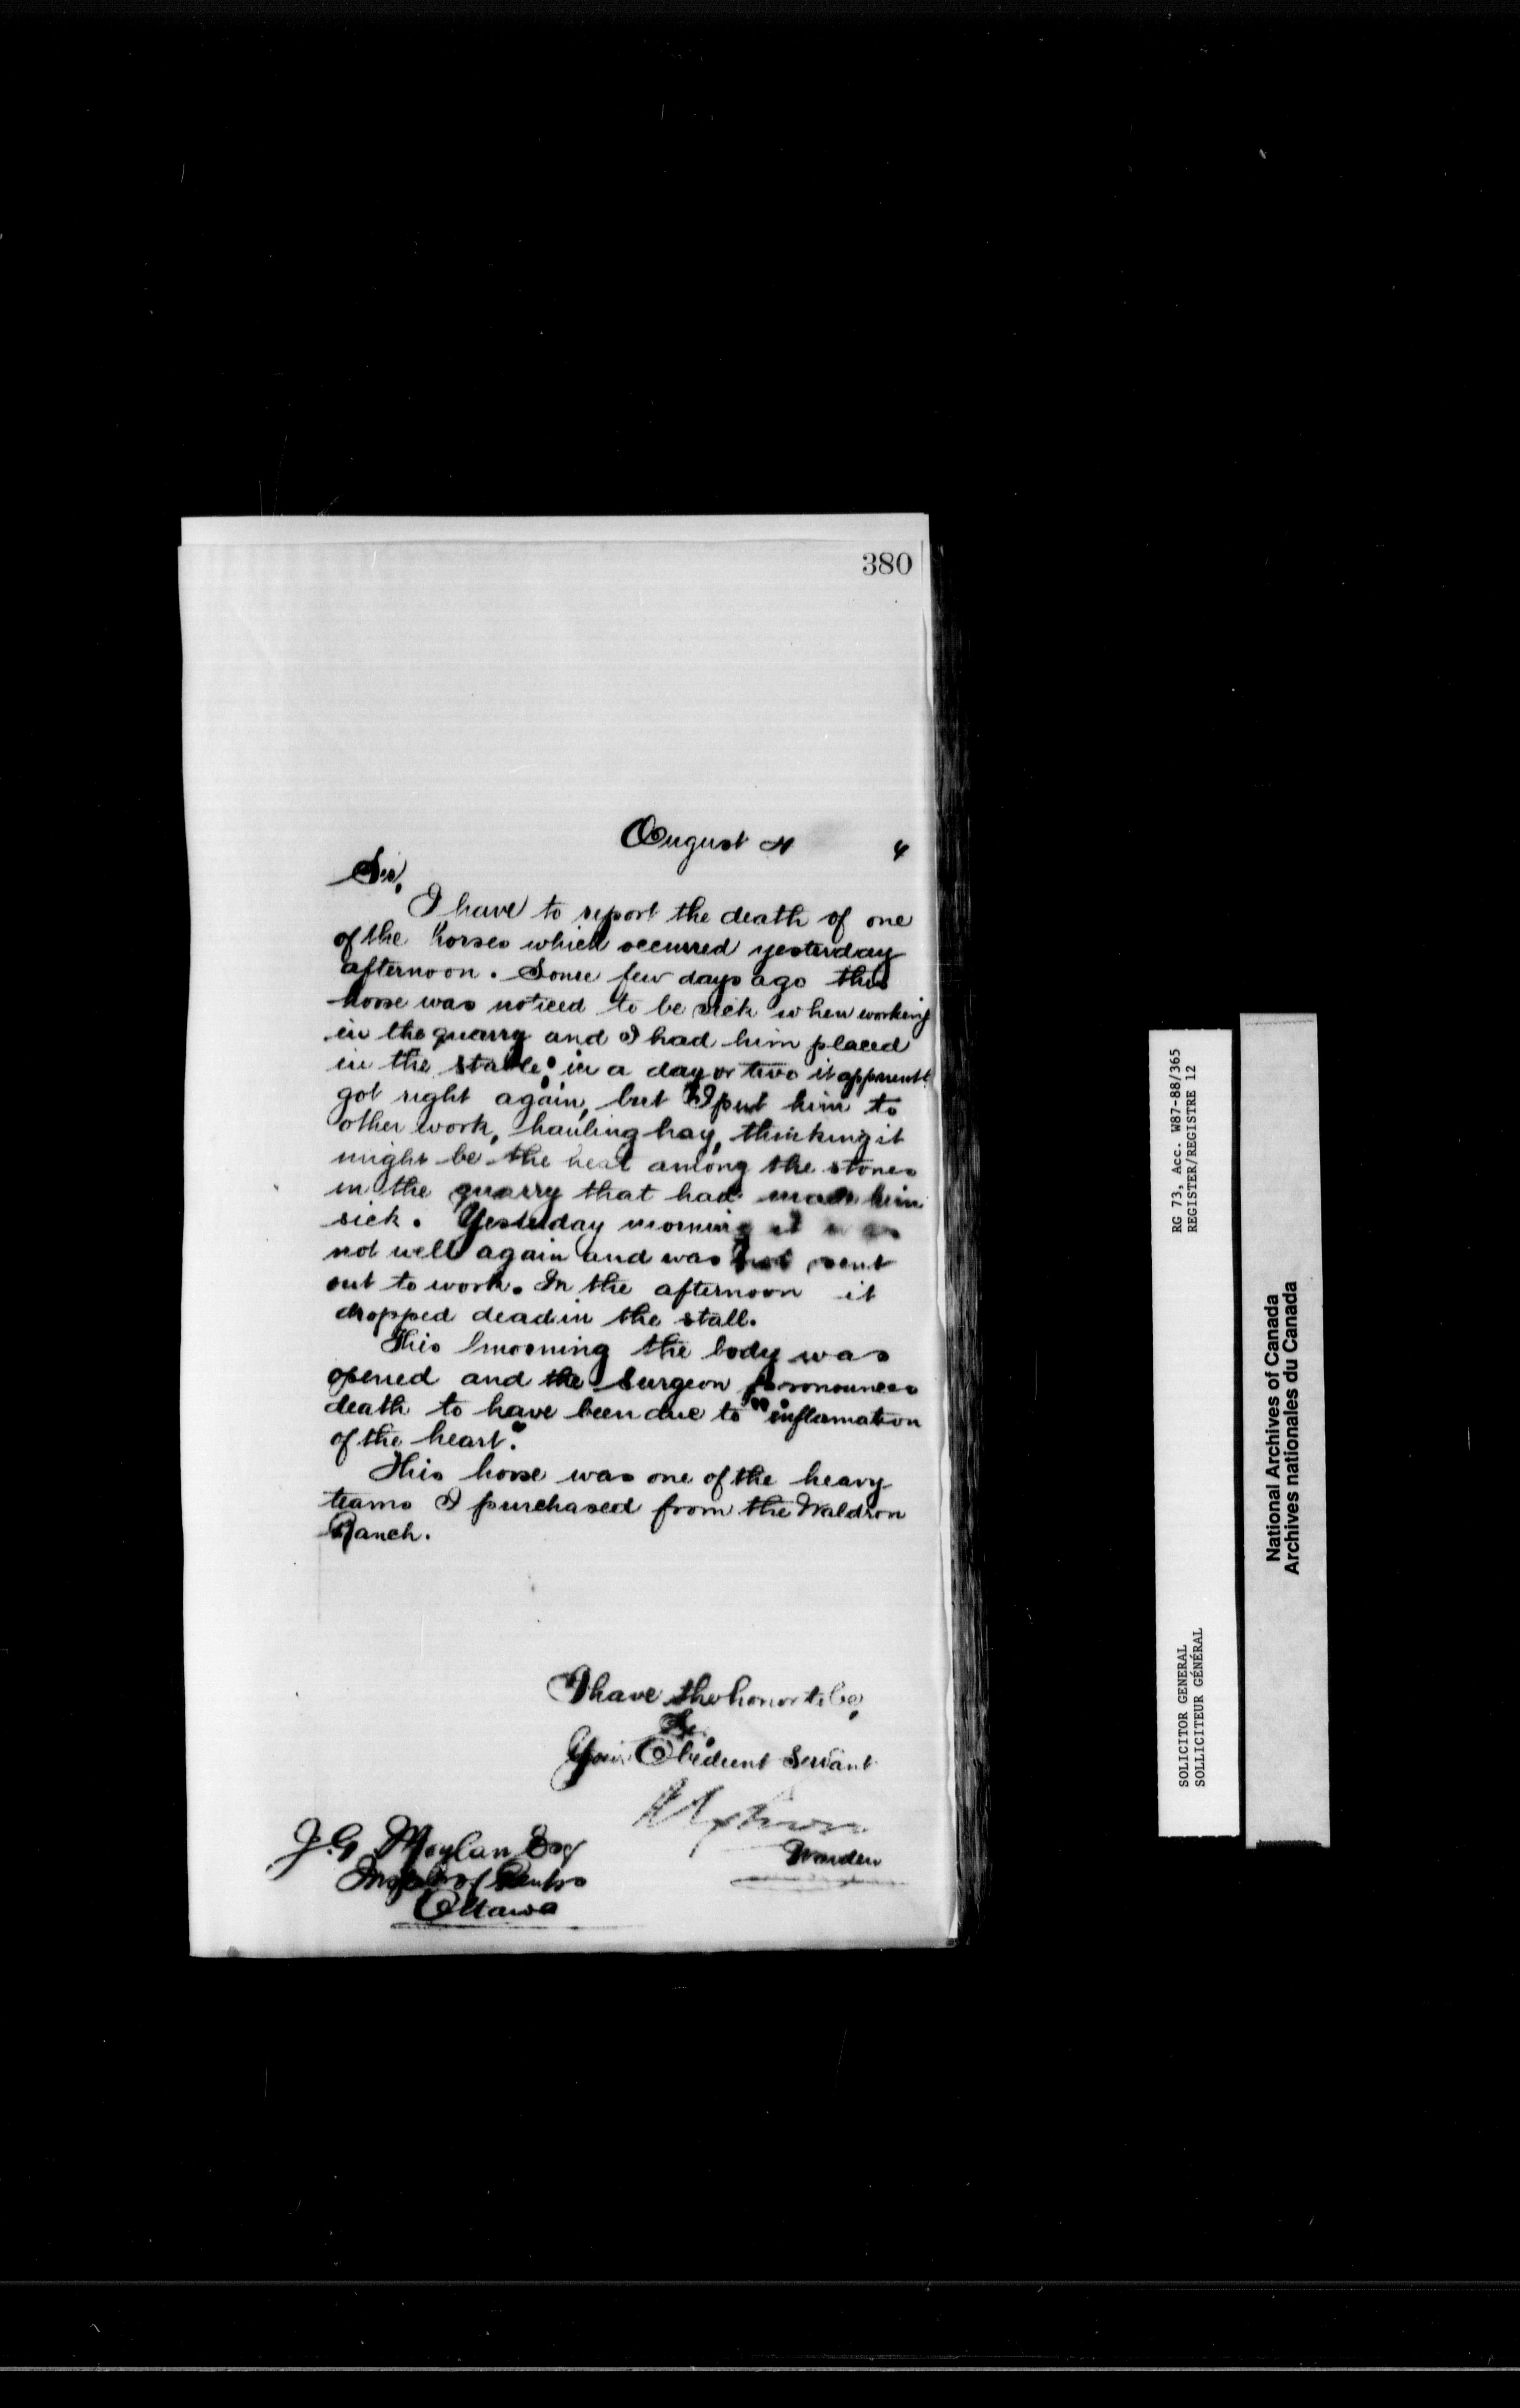 380
August 4 4
Sir,
I have to report the death of one
of the horses which occurred yesterday
afternoon. Some few days ago this
horse was noticed to be sick when working
in the quarry and I had him placed
in the stable; in a day or two it apparent
got right again, but I put him to
other work, hauling hay, thinking it
might be the heat among the stones
in the quarry that had made him
sick. Yesterday morning it was
not well again and was not sent
out to work. In the afternoon it
dropped dead in the stall.
This morning the body was
opened and the Surgeon pronounces
death to have been due to "inflamation
of the heart."
This horse was one of the heavy
teams I purchased from the Waldron
Ranch.
I have the honor to be,
Sir,
Your Obedient Servant
Warden
J. G. Moylan Esq
Inspr of Pentrs
Ottawa
RG 73, Acc. W87-88/365
REGISTER/REGISTRE 12
SOLICITOR GENERAL
SOLLICITEUR GÉNÉRAL
National Archives of Canada
Archives nationales du Canada